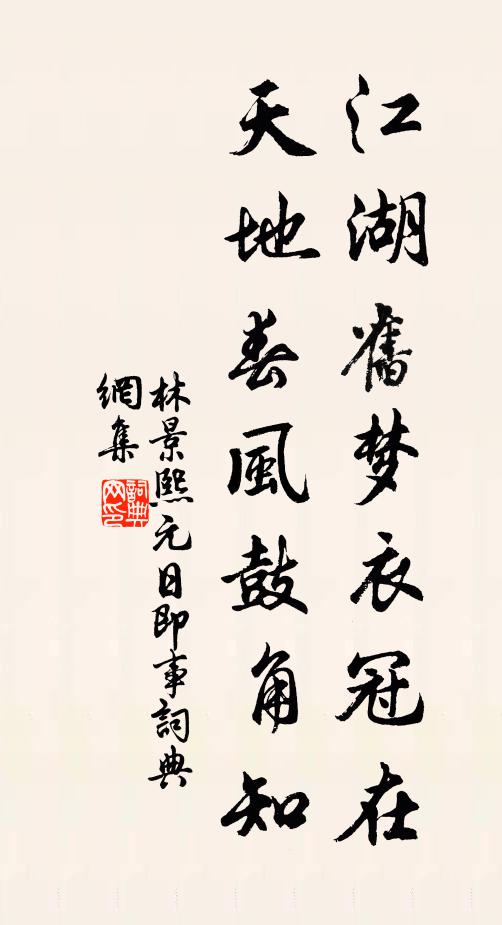 江湖舊梦衣冠在
天地春風鼓角知
林景熙元日即事詞典
網集
詞典网印